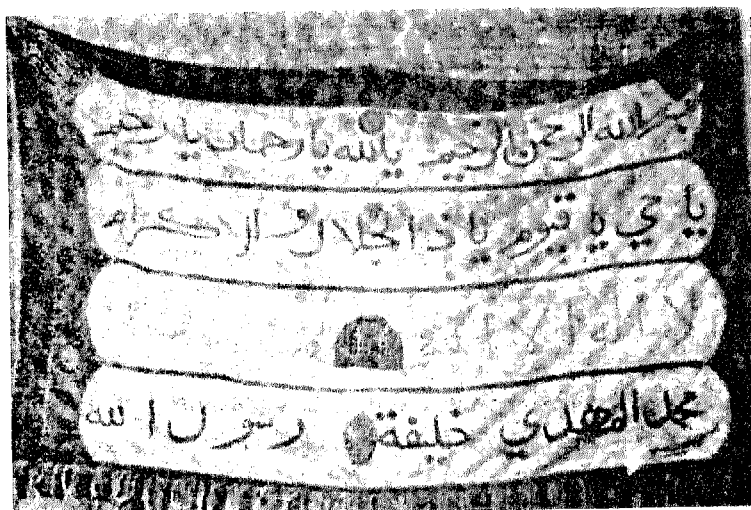 بسم الله الرحمن الرحيم يالله يا رحمان يا رحيم
يا حي يا قيوم يا ذا الجلال و الاكرام
لا اله الا الله
محمد المهدي خليفة رسول الله